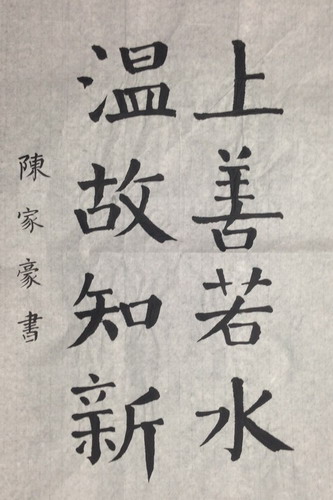 上善若水
温故知新
陳家豪書